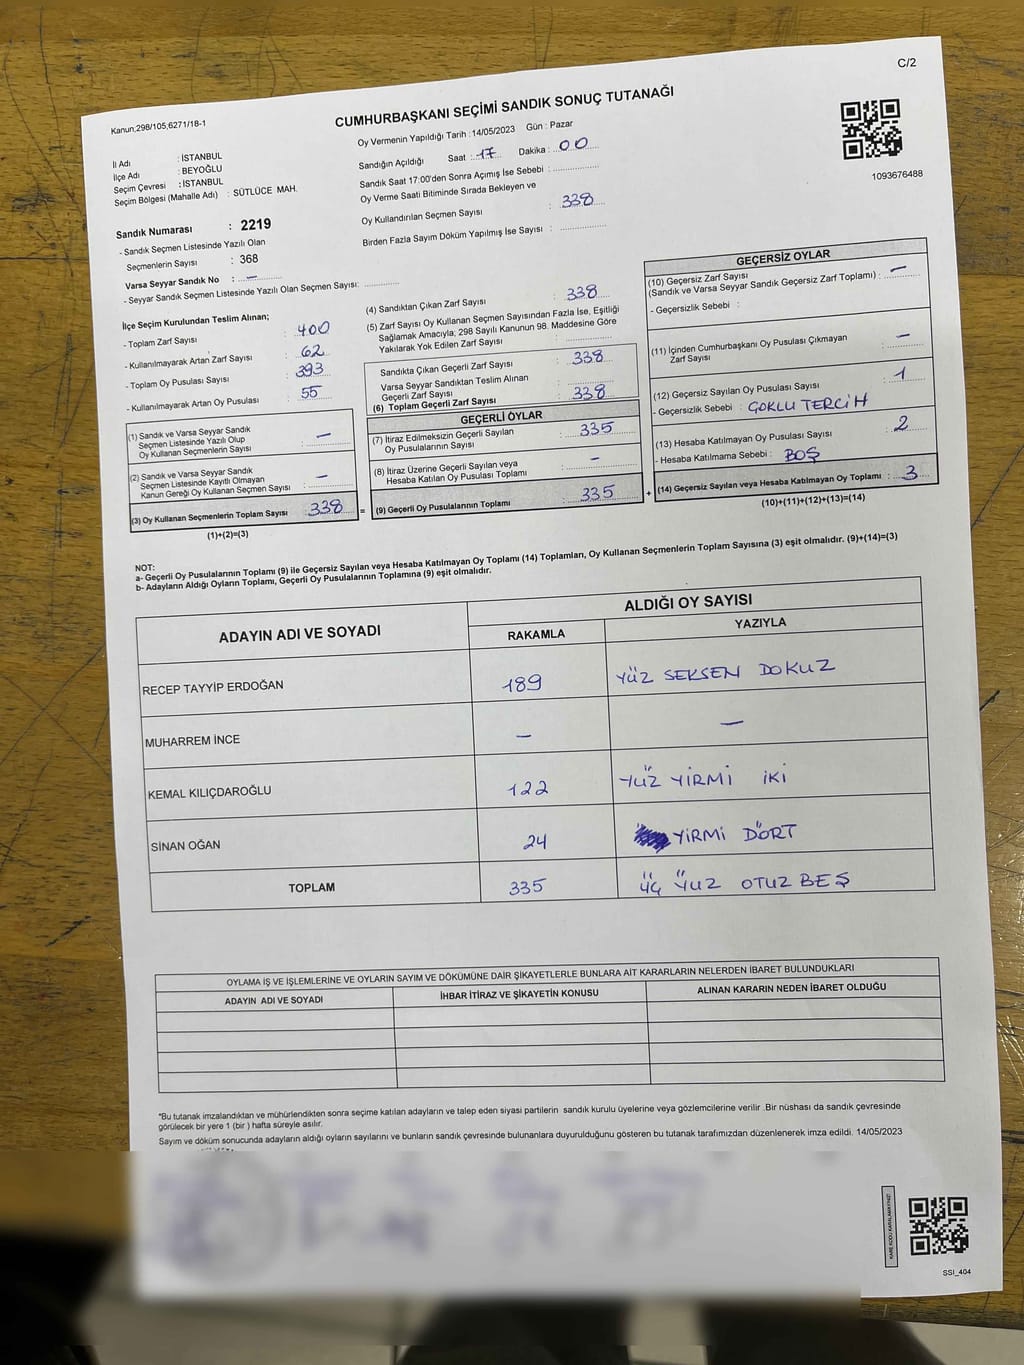 C/2
Kanun,298/105,6271/18-1
CUMHURBAŞKANI SEÇİMİ SANDIK SONUÇ TUTANAĞI
Oy Vermenin Yapıldığı Tarih :14/05/2023 Gün : Pazar
1093676488
İl Adı : İSTANBUL
İlçe Adı : BEYOĞLU
Seçim Çevresi : İSTANBUL
Seçim Bölgesi (Mahalle Adı) : SÜTLÜCE MAH.
Sandık Numarası : 2219
- Sandık Seçmen Listesinde Yazılı Olan
Seçmenlerin Sayısı : 368
Varsa Seyyar Sandık No : —
- Seyyar Sandık Seçmen Listesinde Yazılı Olan Seçmen Sayısı:
Sandığın Açıldığı Saat : 17 Dakika : 00
Sandık Saat 17:00'den Sonra Açımış İse Sebebi :
Oy Verme Saati Bitiminde Sırada Bekleyen ve
Oy Kullandırılan Seçmen Sayısı : 338
Birden Fazla Sayım Döküm Yapılmış İse Sayısı :
İlçe Seçim Kurulundan Teslim Alınan;
- Toplam Zarf Sayısı : 400
- Kullanılmayarak Artan Zarf Sayısı : 62
- Toplam Oy Pusulası Sayısı : 393
- Kullanılmayarak Artan Oy Pusulası : 55
(1) Sandık ve Varsa Seyyar Sandık
Seçmen Listesinde Yazılı Olup
Oy Kullanan Seçmenlerin Sayısı : —
(2) Sandık ve Varsa Seyyar Sandık
Seçmen Listesinde Kayıtlı Olmayan
Kanun Gereği Oy Kullanan Seçmen Sayısı : —
(3) Oy Kullanan Seçmenlerin Toplam Sayısı : 338 =
(1)+(2)=(3)
(4) Sandıktan Çıkan Zarf Sayısı : 338
(5) Zarf Sayısı Oy Kullanan Seçmen Sayısından Fazla İse, Eşitliği
Sağlamak Amacıyla, 298 Sayılı Kanunun 98. Maddesine Göre
Yakılarak Yok Edilen Zarf Sayısı :
Sandıkta Çıkan Geçerli Zarf Sayısı : 338
Varsa Seyyar Sandıktan Teslim Alınan
Geçerli Zarf Sayısı :
(6) Toplam Geçerli Zarf Sayısı : 338
GEÇERLİ OYLAR
(7) İtiraz Edilmeksizin Geçerli Sayılan
Oy Pusulalarının Sayısı : 335
(8) İtiraz Üzerine Geçerli Sayılan veya
Hesaba Katılan Oy Pusulası Toplamı : —
(9) Geçerli Oy Pusulalarının Toplamı : 335 +
GEÇERSİZ OYLAR
(10) Geçersiz Zarf Sayısı
(Sandık ve Varsa Seyyar Sandık Geçersiz Zarf Toplamı) : —
- Geçersizlik Sebebi :
(11) İçinden Cumhurbaşkanı Oy Pusulası Çıkmayan
Zarf Sayısı : —
(12) Geçersiz Sayılan Oy Pusulası Sayısı : 1
- Geçersizlik Sebebi : ÇOKLU TERCİH
(13) Hesaba Katılmayan Oy Pusulası Sayısı : 2
- Hesaba Katılmama Sebebi : BOŞ
(14) Geçersiz Sayılan veya Hesaba Katılmayan Oy Toplamı : 3
(10)+(11)+(12)+(13)=(14)
NOT:
a- Geçerli Oy Pusulalarının Toplamı (9) ile Geçersiz Sayılan veya Hesaba Katılmayan Oy Toplamı (14) Toplamları, Oy Kullanan Seçmenlerin Toplam Sayısına (3) eşit olmalıdır. (9)+(14)=(3)
b- Adayların Aldığı Oyların Toplamı, Geçerli Oy Pusulalarının Toplamına (9) eşit olmalıdır.
ADAYIN ADI VE SOYADI ALDIĞI OY SAYISI
RAKAMLA YAZIYLA
RECEP TAYYİP ERDOĞAN 189 YÜZ SEKSEN DOKUZ
MUHARREM İNCE — —
KEMAL KILIÇDAROĞLU 122 YÜZ YİRMİ İKİ
SİNAN OĞAN 24 YİRMİ DÖRT
TOPLAM 335 ÜÇ YÜZ OTUZ BEŞ
OYLAMA İŞ VE İŞLEMLERİNE VE OYLARIN SAYIM VE DÖKÜMÜNE DAİR ŞİKAYETLERLE BUNLARA AİT KARARLARIN NELERDEN İBARET BULUNDUKLARI
ADAYIN ADI VE SOYADI İHBAR İTİRAZ VE ŞİKAYETİN KONUSU ALINAN KARARIN NEDEN İBARET OLDUĞU
*Bu tutanak imzalandıktan ve mühürlendikten sonra seçime katılan adayların ve talep eden siyasi partilerin sandık kurulu üyelerine veya gözlemcilerine verilir .Bir nüshası da sandık çevresinde
görülecek bir yere 1 (bir ) hafta süreyle asılır.
Sayım ve döküm sonucunda adayların aldığı oyların sayılarını ve bunların sandık çevresinde bulunanlara duyurulduğunu gösteren bu tutanak tarafımızdan düzenlenerek imza edildi. 14/05/2023
KARE KODU KARALAMAYINIZ!
SSI_404